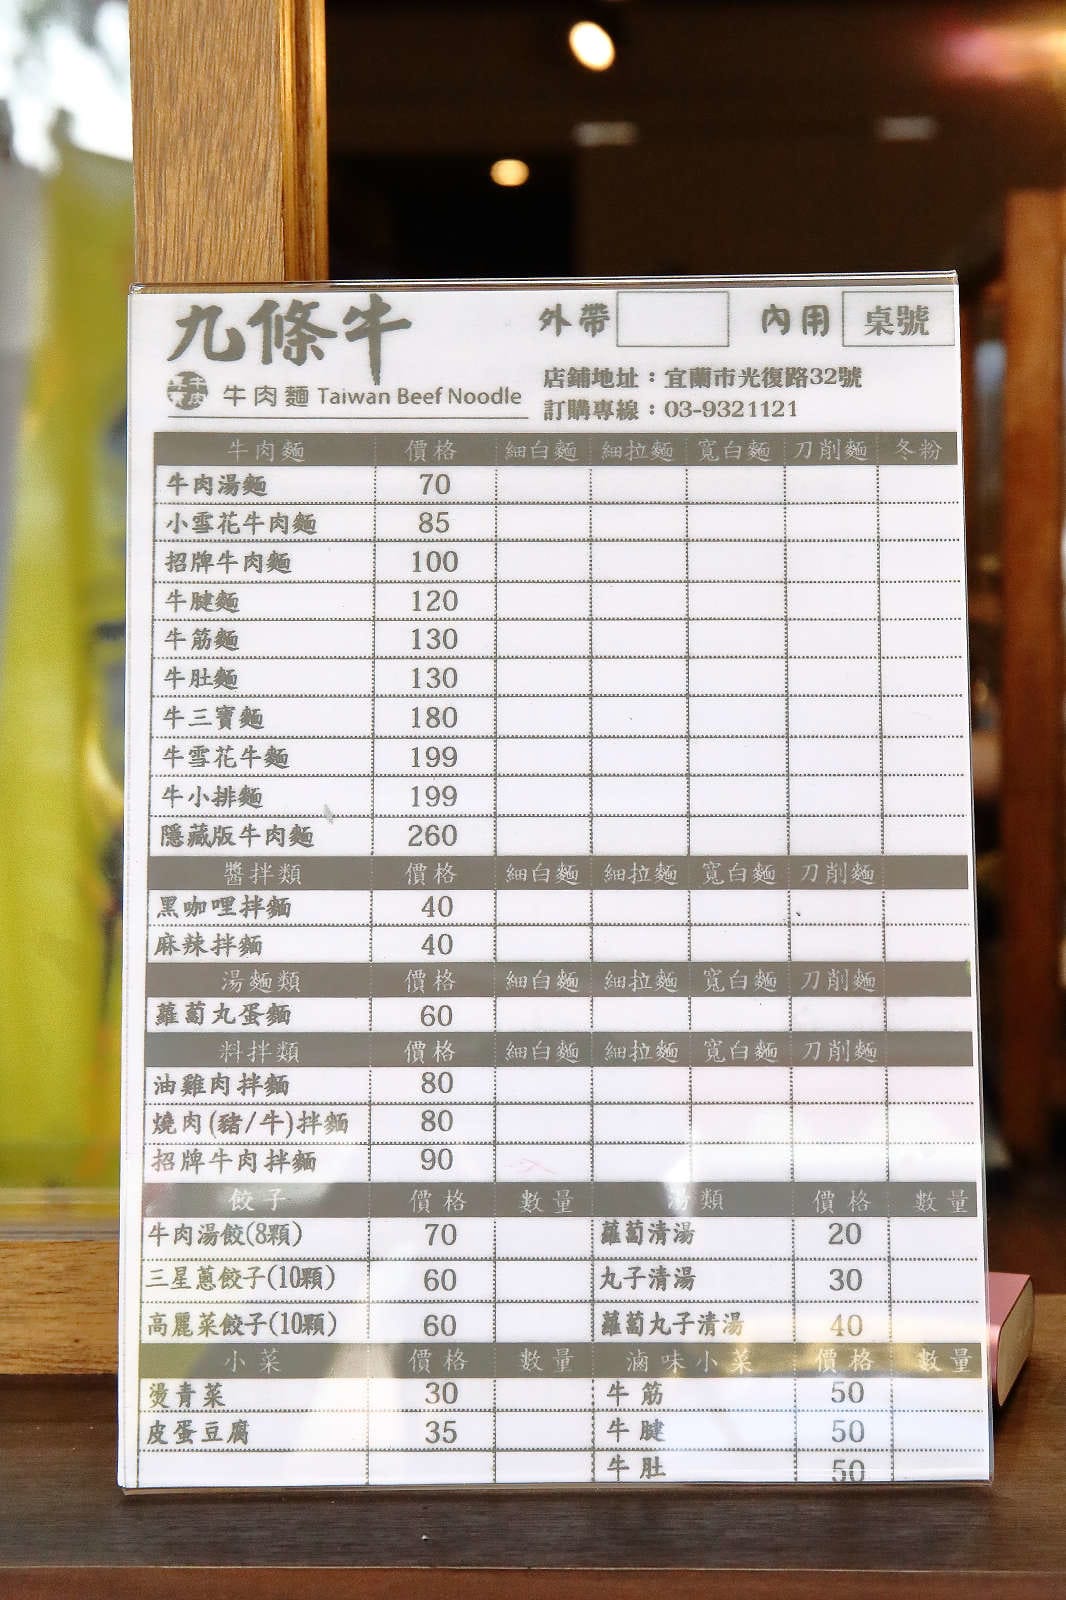 九條牛
外帶 內用 桌號
牛肉麵 Taiwan Beef Noodle
店鋪地址：宜蘭市光復路32號
訂購專線：03-9321121
牛肉麵 價格 細白麵 細拉麵 寬白麵 刀削麵 冬粉
牛肉湯麵 70
小雪花牛肉麵 85
招牌牛肉麵 100
牛腱麵 120
牛筋麵 130
牛肚麵 130
牛三寶麵 180
牛雪花牛麵 199
牛小排麵 199
隱藏版牛肉麵 260
醬拌類 價格 細白麵 細拉麵 寬白麵 刀削麵
黑咖哩拌麵 40
麻辣拌麵 40
湯麵類 價格 細白麵 細拉麵 寬白麵 刀削麵
蘿蔔丸蛋麵 60
料拌類 價格 細白麵 細拉麵 寬白麵 刀削麵
油雞肉拌麵 80
燒肉(豬/牛)拌麵 80
招牌牛肉拌麵 90
餃子 價格 數量 湯類 價格 數量
牛肉湯餃(8顆) 70 蘿蔔清湯 20
三星蔥餃子(10顆) 60 丸子清湯 30
高麗菜餃子(10顆) 60 蘿蔔丸子清湯 40
小菜 價格 數量 滷味小菜 價格 數量
燙青菜 30 牛筋 50
皮蛋豆腐 35 牛腱 50
牛肚 50